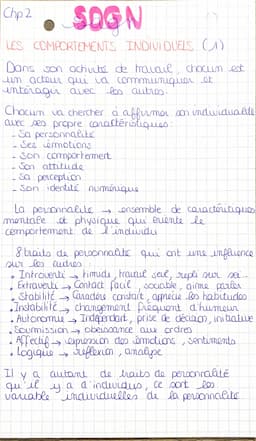 Chp 2
SDGN
LES COMPORTEMENTS INDIVIDUELS (1)
Dans son activité de travail, chacun est
un acteur qui va communiquer et
intéragir avec les autres.
Chacun va chercher à affirmer son individualité
avec ses propre caractéristiques:
- Sa personnalité
- Ses émotions
- Son comportement
- Son attitude
- Sa perception
- Son identité numérique
La personnalité → ensemble de caractéristiques
mentale et physique qui oriente le
comportement de l'individu
8 traits de personnalité qui ont une influence
sur les autres:
• Introverti → timide, travail seul, repli sur soi
• Extraverti → Contact facil, sociable, aime parler
• Stabilité → Caractère constant, apprécie les habitudes
• Instabilité → changement fréquent d'humeur
• Autonomie → Indépendant, prise de décision, initiative
• Soumission → obéissance aux ordres
• Affectif → expression des émotions, sentiments
• Logique → réflexion, analyse
Il y a autant de traits de personnalité
qu'il y a d'individus, ce sont les
variable individuelles de la personnalité